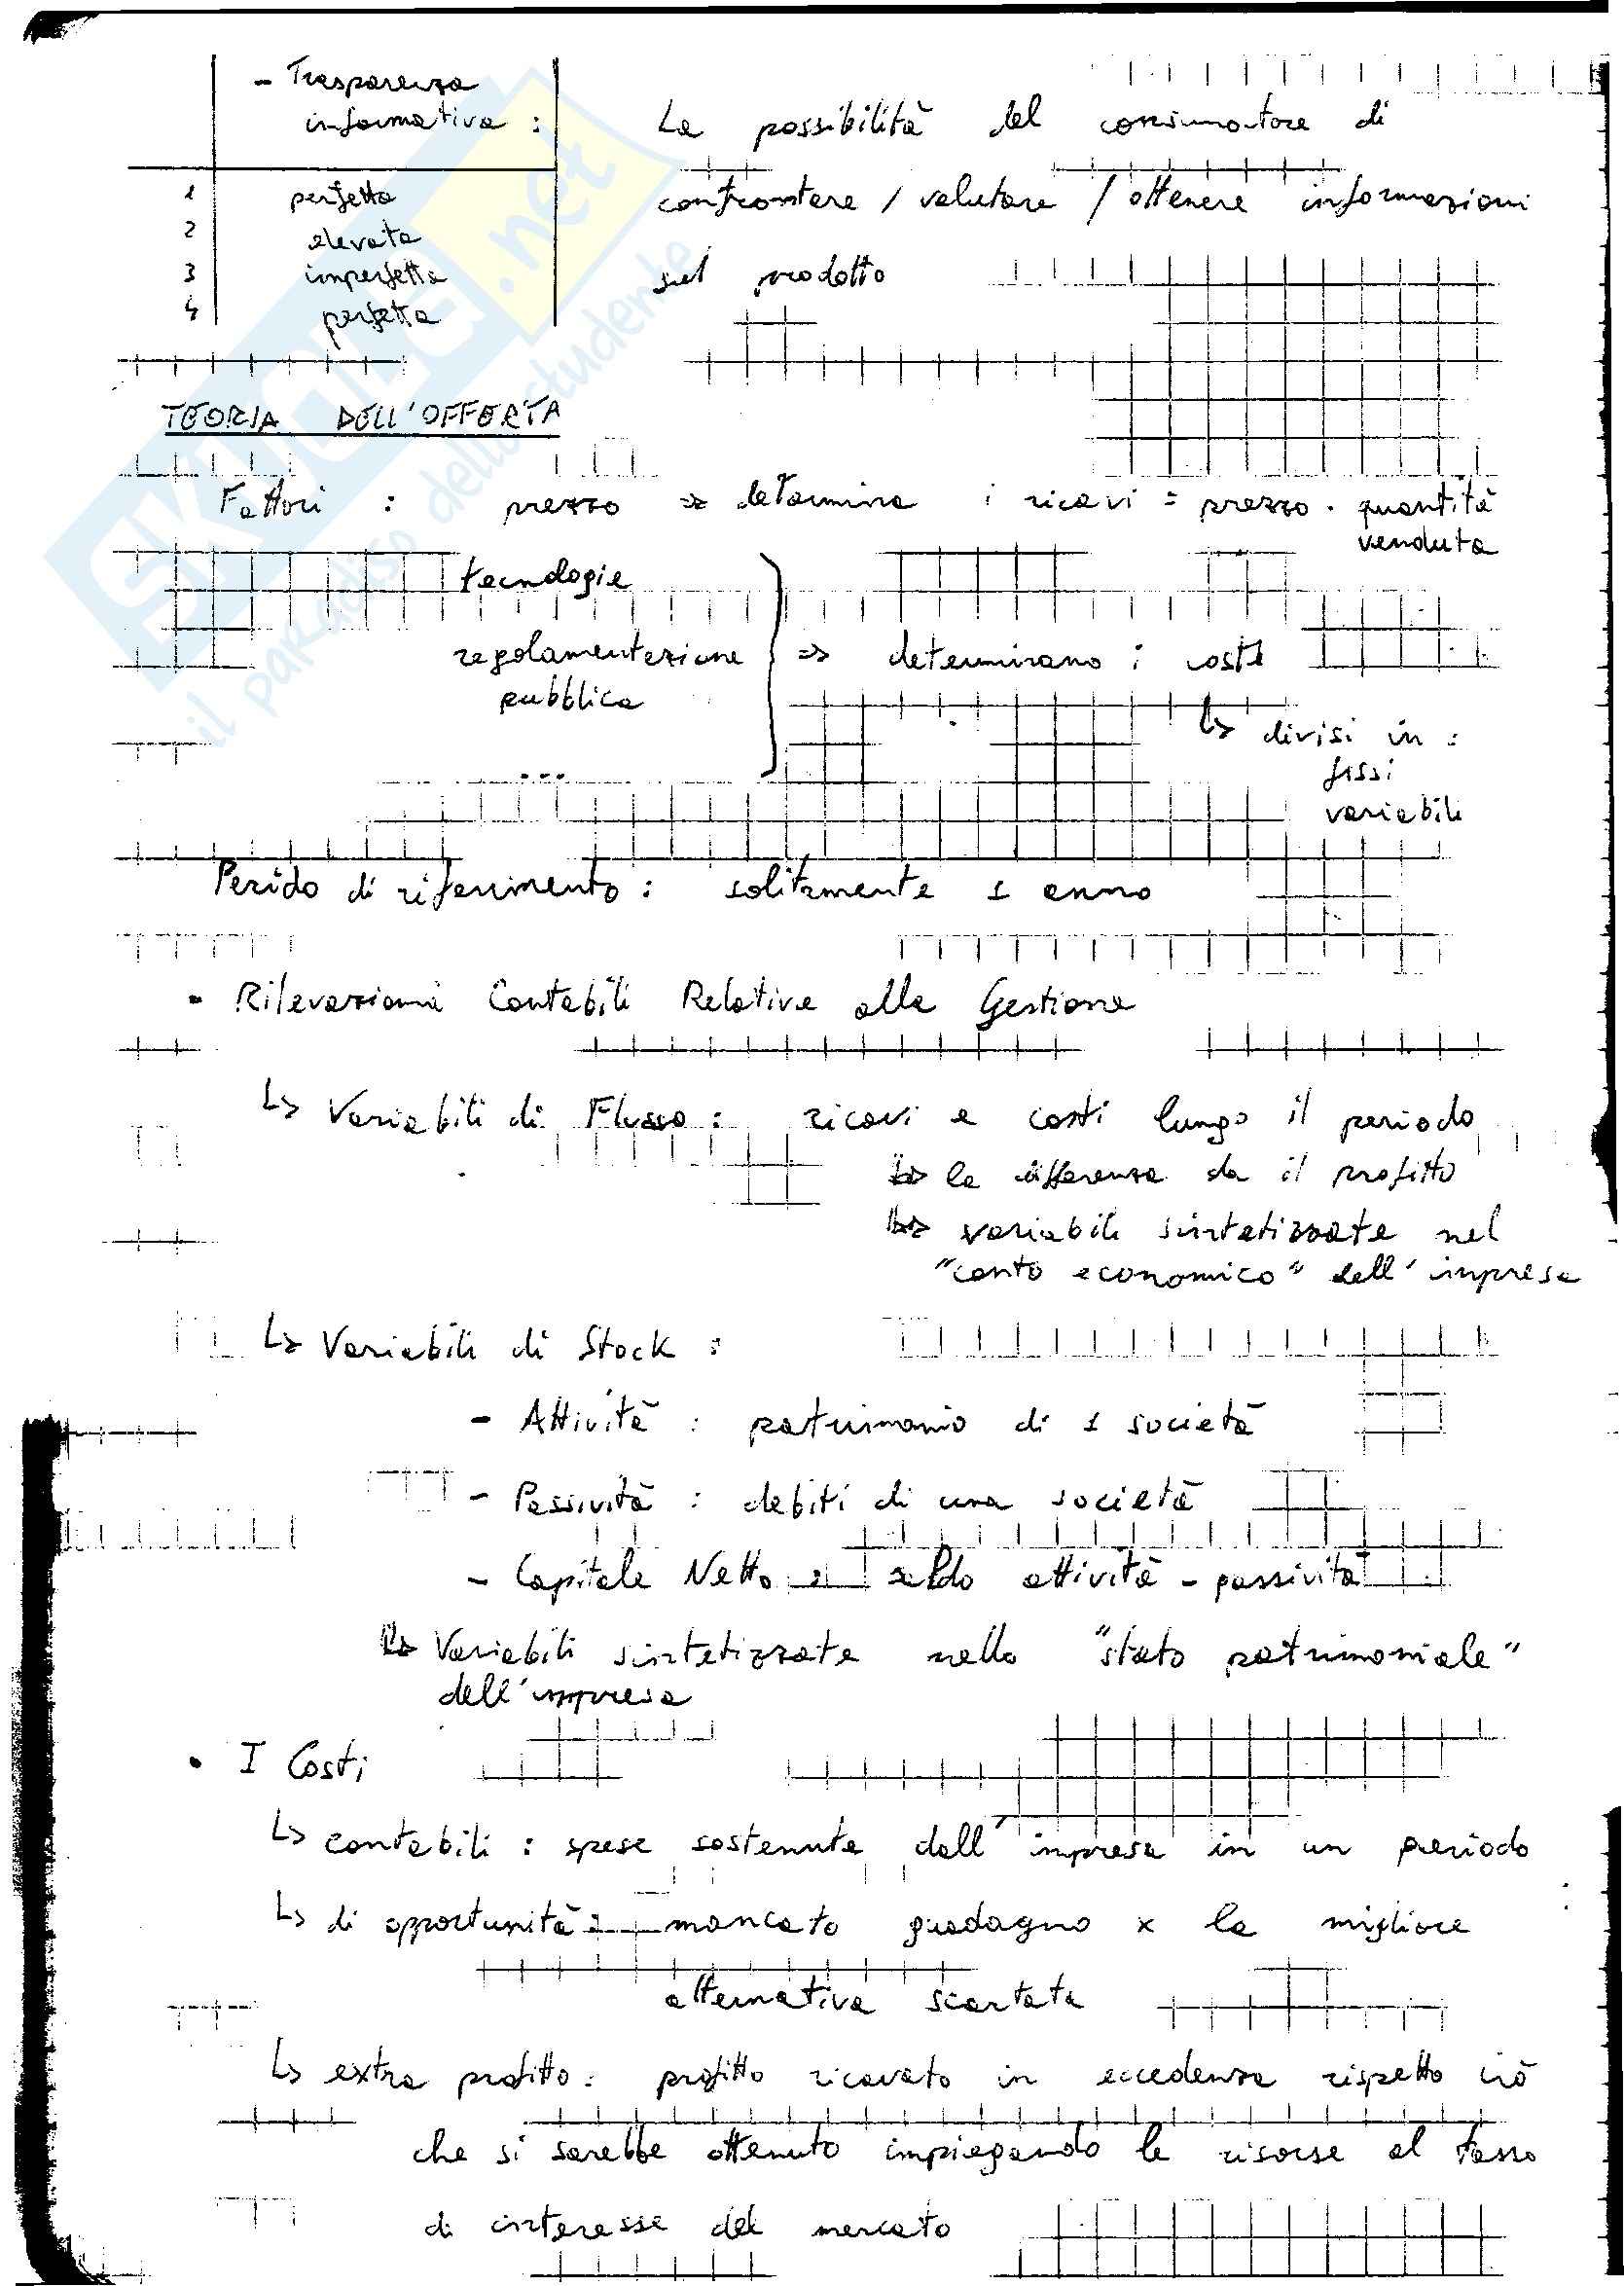 - Trasparenza
informativa : La possibilità del consumatore di
1 perfetta confrontare / valutare / ottenere informazioni
2 elevata
3 imperfetta sul prodotto
4 perfetta
TEORIA DELL'OFFERTA
Fattori : prezzo => determina i ricavi = prezzo · quantità
venduta
tecnologie
regolamentazione => determinano i costi
pubblica
↳ divisi in :
... fissi
variabili
Perido di riferimento : solitamente 1 anno
• Rilevazioni Contabili Relative alla Gestione
↳ Variabili di Flusso : ricavi e costi lungo il periodo
↳ la differenza da il profitto
↳ variabili sintetizzate nel
"conto economico" dell'impresa
↳ Variabili di Stock :
- Attività : patrimonio di 1 società
- Passività : debiti di una società
- Capitale Netto : saldo attività - passività
↳ Variabili sintetizzate nello "stato patrimoniale"
dell'impresa
• I Costi
↳ contabili : spese sostenute dall'impresa in un periodo
↳ di opportunità : mancato guadagno x la migliore
alternativa scartata
↳ extra profitto : profitto ricavato in eccedenza rispetto ciò
che si sarebbe ottenuto impiegando le risorse al tasso
di interesse del mercato
SKUOLA.net
il paradiso dello studente